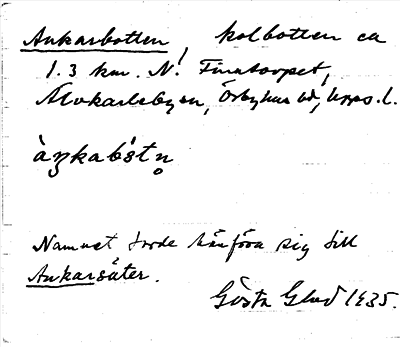 Ankarbotten, kolbotten ca
1.3 km. N. Finntorpet,
Älvkarlebysn, Örbyhus hd, Upps.l.
àŋkabǒ́tn̥
Namnet torde hänföra sig till
Ankarsäter.
Gösta Glad 1935.